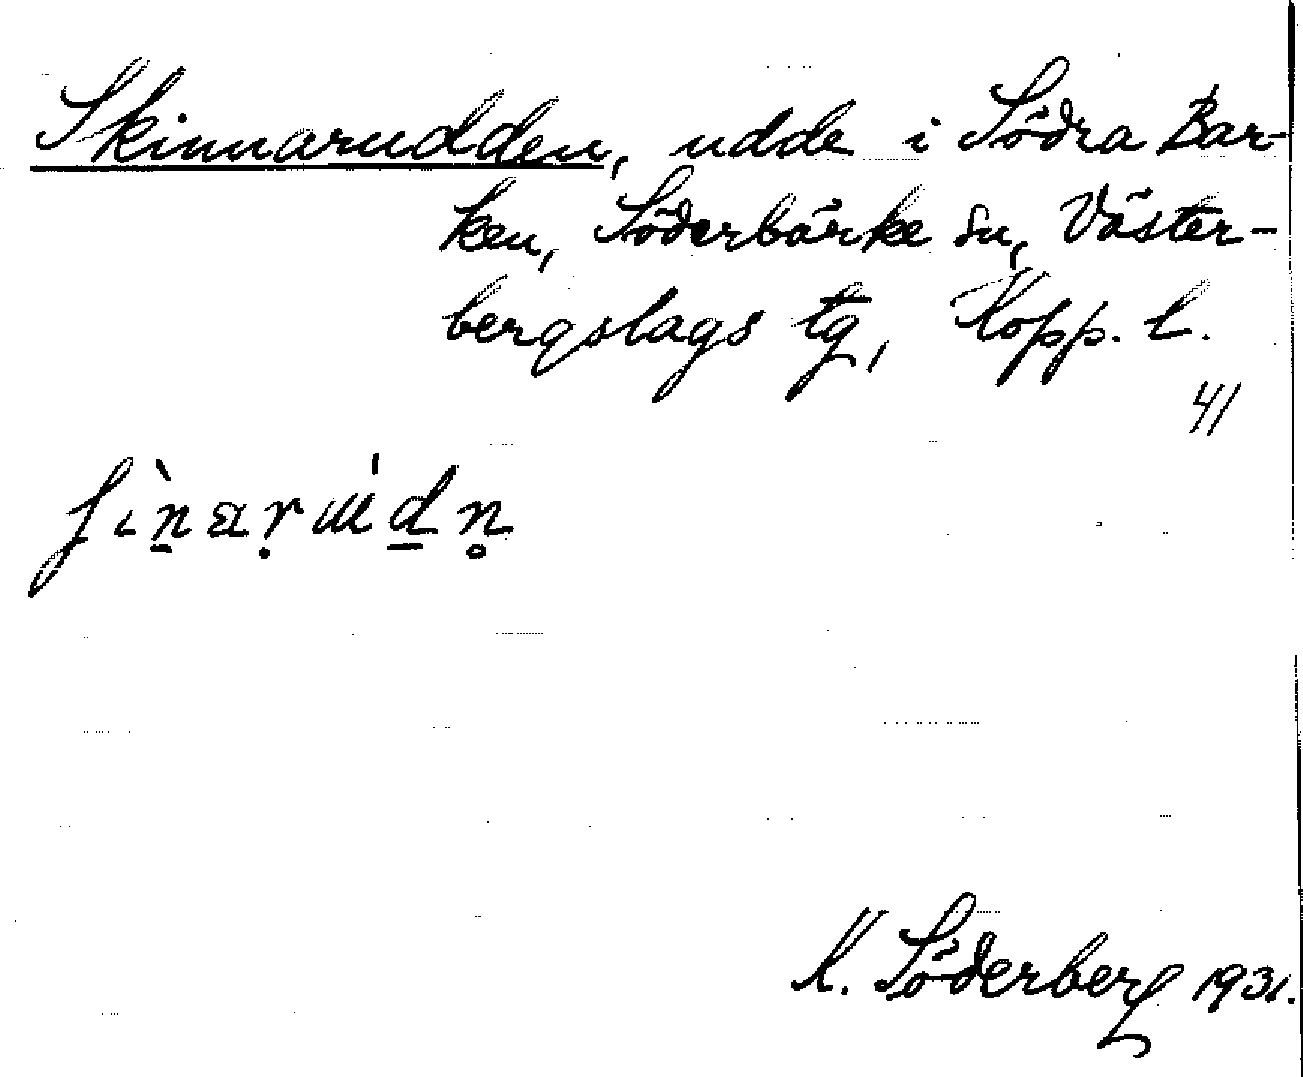 Skinnarudden, udde i Södra Bar-
ken, Söderbärke sn, Väster-
bergslags tg, Kopp. l.
41
K. Söderberg 1931.